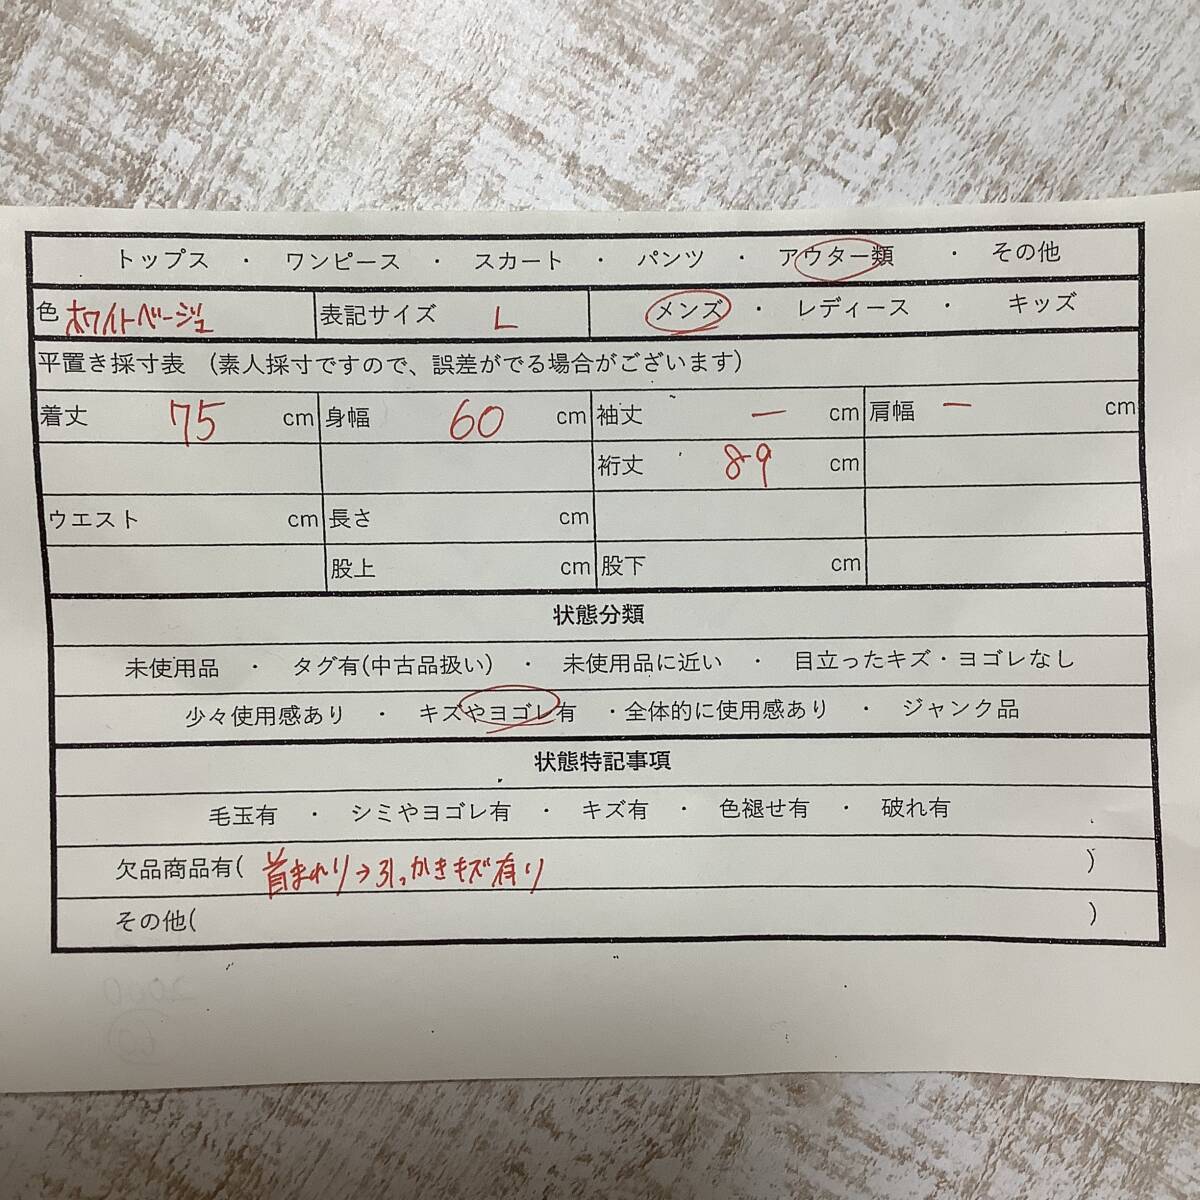 トップス ・ ワンピース ・ スカート ・ パンツ ・ アウター類 ・ その他
色 ホワイトベージュ 表記サイズ L メンズ ・ レディース ・ キッズ
平置き採寸表 (素人採寸ですので、誤差がでる場合がございます)
着丈 75 cm 身幅 60 cm 袖丈 ー cm 肩幅 ー cm
裄丈 89 cm
ウエスト cm 長さ cm
股上 cm 股下 cm
状態分類
未使用品 ・ タグ有(中古品扱い) ・ 未使用品に近い ・ 目立ったキズ・ヨゴレなし
少々使用感あり ・ キズやヨゴレ有 ・全体的に使用感あり ・ ジャンク品
状態特記事項
毛玉有 ・ シミやヨゴレ有 ・ キズ有 ・ 色褪せ有 ・ 破れ有
欠品商品有( 首まわり→引っかきキズ有り )
その他( )